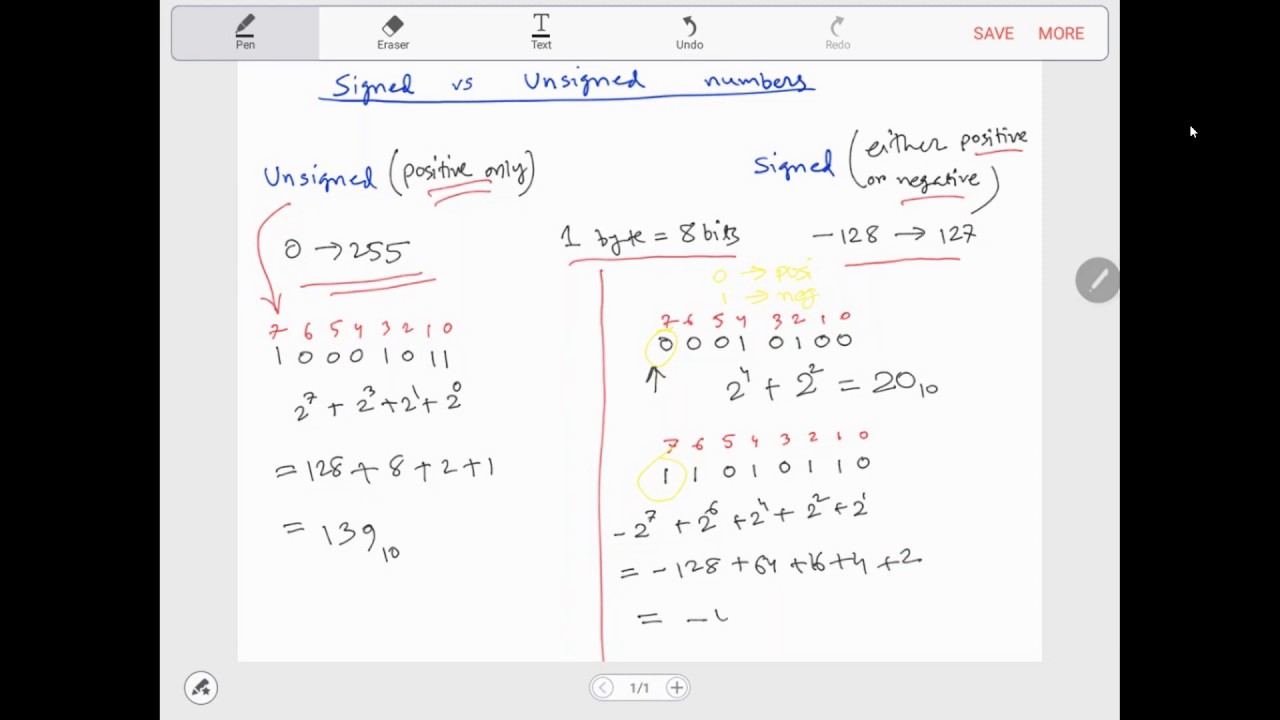 Pen Eraser Text Undo Redo SAVE MORE
Signed vs Unsigned numbers
Unsigned (positive only)
0 → 255
7 6 5 4 3 2 1 0
1 0 0 0 1 0 1 1
2^7 + 2^3 + 2^1 + 2^0
= 128 + 8 + 2 + 1
= 139₁₀
1 byte = 8 bits
Signed (either positive
or negative)
-128 → 127
0 → posi
1 → neg
7 6 5 4 3 2 1 0
0 0 0 1 0 1 0 0
2^4 + 2^2 = 20₁₀
7 6 5 4 3 2 1 0
1 1 0 1 0 1 1 0
-2^7 + 2^6 + 2^4 + 2^2 + 2^1
= -128 + 64 + 16 + 4 + 2
= -
1/1